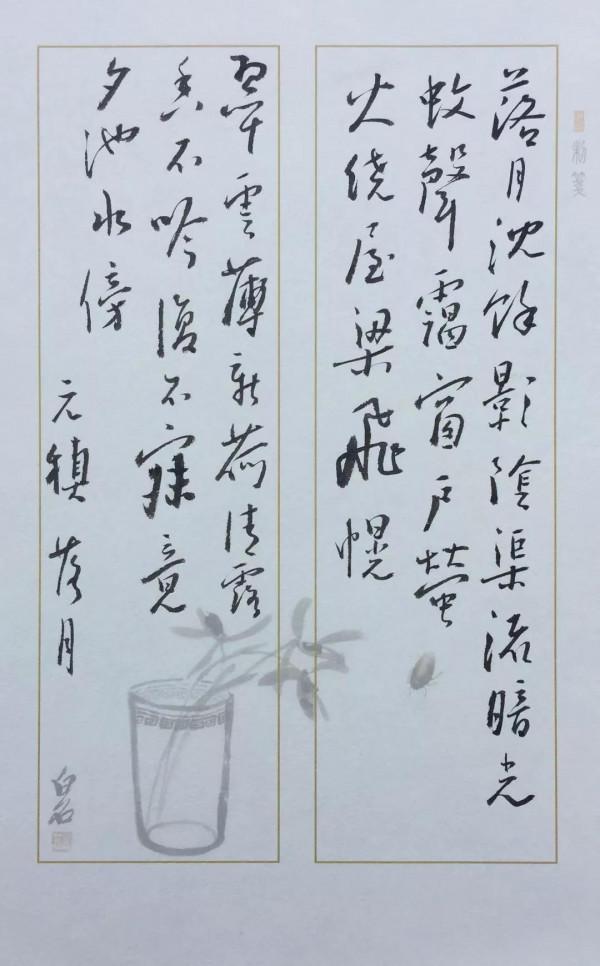 落月沈餘影陰渠流暗光
蚊聲靄窗戶螢
火繞屋梁飛幌
翠雲薄新荷清露
香不吟復不寐竟
夕池水傍
元稹 落月
白石